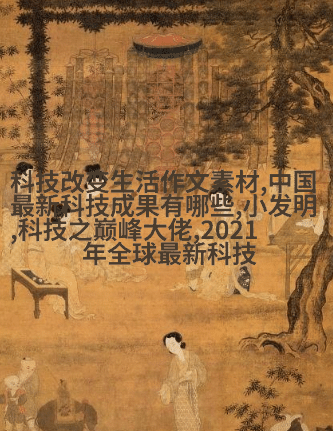 科技改变生活作文素材,中国
最新科技成果有哪些,小发明
,科技之巅峰大佬,2021
年全球最新科技